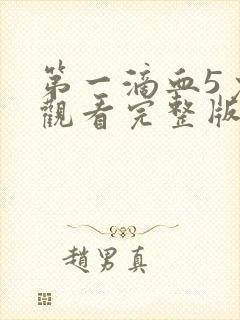 第一滴血5
觀看完整版
趙男真